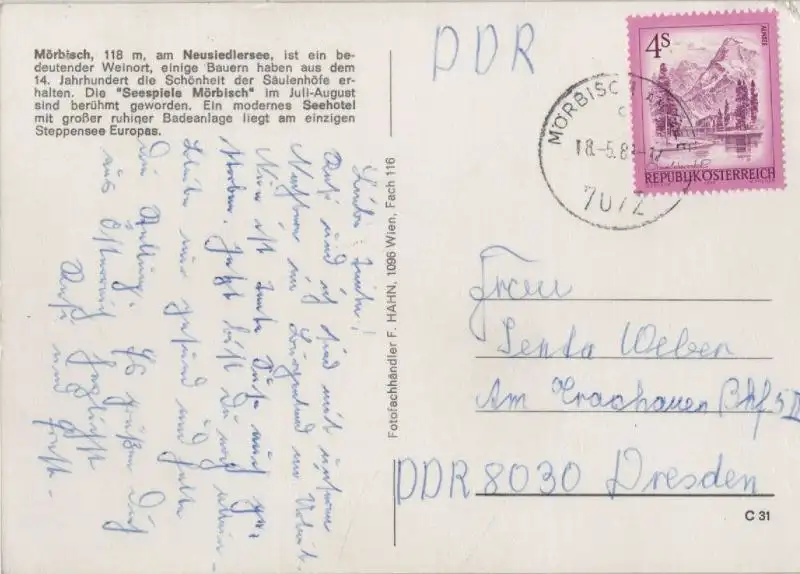 Mörbisch, 118 m, am Neusiedlersee, ist ein be-
deutender Weinort, einige Bauern haben aus dem
14. Jahrhundert die Schönheit der Säulenhöfe er-
halten. Die "Seespiele Mörbisch" im Juli-August
sind berühmt geworden. Ein modernes Seehotel
mit großer ruhiger Badeanlage liegt am einzigen
Steppensee Europas.
DDR
4S
ALMSEE
REPUBLIK ÖSTERREICH
MÖRBISCH AM SEE
18.-5.8
7072
Liebe
und ich sind mit unseren
Nachbarn im Burgenland im Urlaub.
Nun ist Tante auch ge-
storben. Jetzt bist Du noch allein –
bleibe nur gesund und halte
die Stellung. Es grüßen Dich
aus Österreich herzlichst
und
Fotofachhändler F. HAHN, 1096 Wien, Fach 116
Frau
Senta Weber
Am Trachauer Bhf 5
DDR 8030 Dresden
C 31